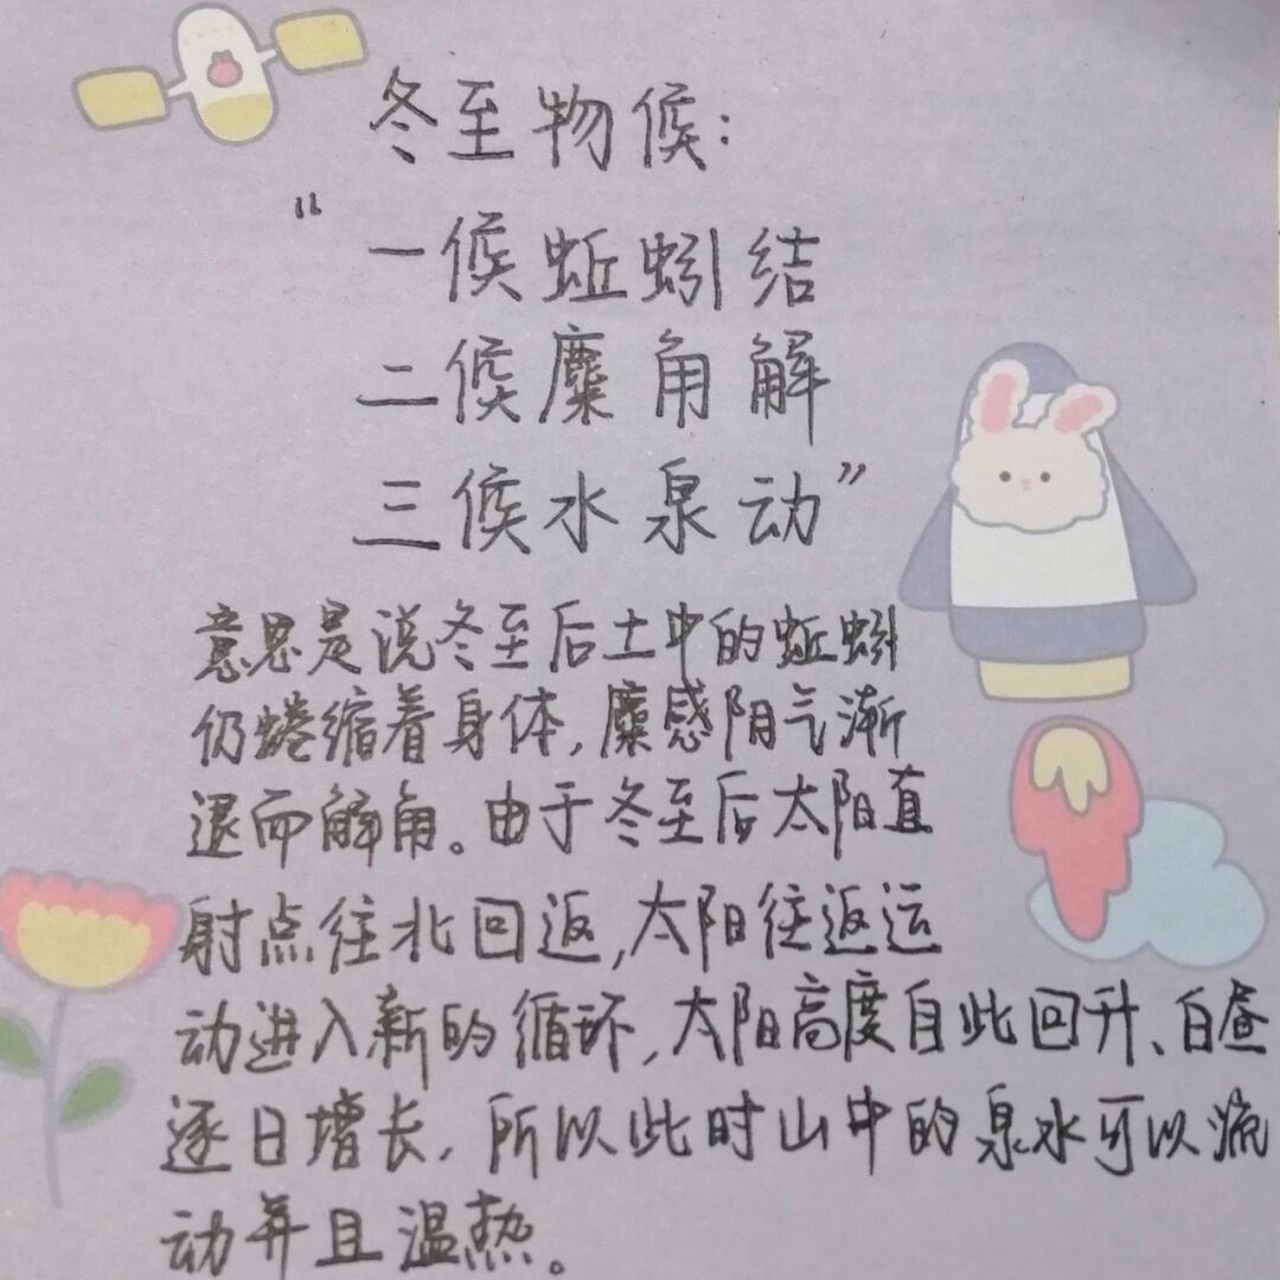 冬至物候：
“一候蚯蚓结
二候麋角解
三候水泉动”
意思是说冬至后土中的蚯蚓
仍蜷缩着身体，麋感阴气渐
退而解角。由于冬至后太阳直
射点往北回返，太阳往返运
动进入新的循环，太阳高度自此回升、白昼
逐日增长，所以此时山中的泉水可以流
动并且温热。